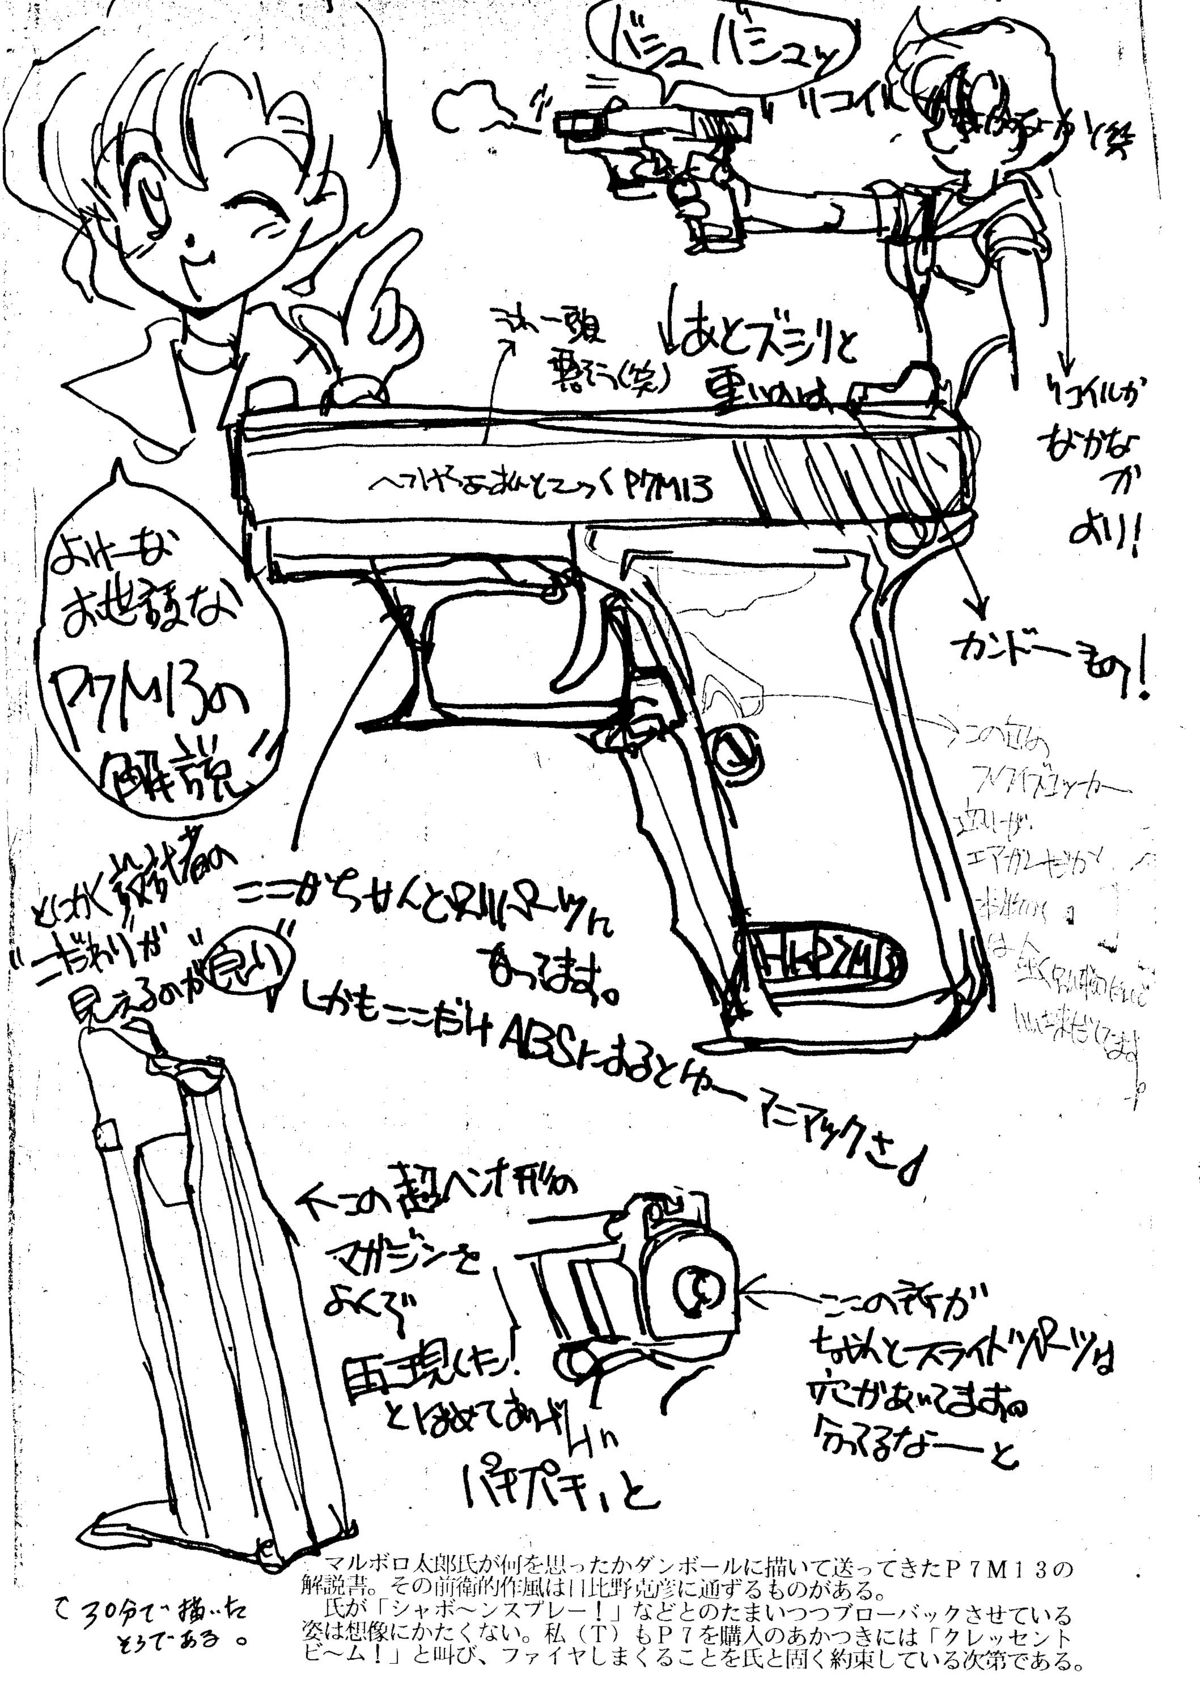 バシュ バシュッ
リコイル
リコイルが
なかなか
より!
うわー頭
悪そう(笑)
↓あとズシリと
重いのは
カンドーもの!
へっけらーあんどこっく P7M13
よけーな
お世話な
P7M13の
解説
とにかく設計者の
"こだわり"が
見えるのが"良い"
ここがちゃんと別パーツに
なってます。
しかもここだけABSにするとゆー マニアックさ♪
HK P7M13
この辺の
スクイズコッカー
エアガンだから
←この超ヘンな形の
マガジンを
よくぞ
再現した!
とほめてあげたい
パチパチ、と
ここの所が
ちゃんとスライドパーツは
穴があいてます。
分ってるなーと
マルボロ太郎氏が何を思ったかダンボールに描いて送ってきたP7M13の
解説書。その前衛的作風は日比野克彦に通ずるものがある。
氏が「シャボ〜ンスプレー!」などとのたまいつつブローバックさせている
姿は想像にかたくない。私(T)もP7を購入のあかつきには「クレッセント
ビ〜ム!」と叫び、ファイヤしまくることを氏と固く約束している次第である。
30分で描いた
そうである。